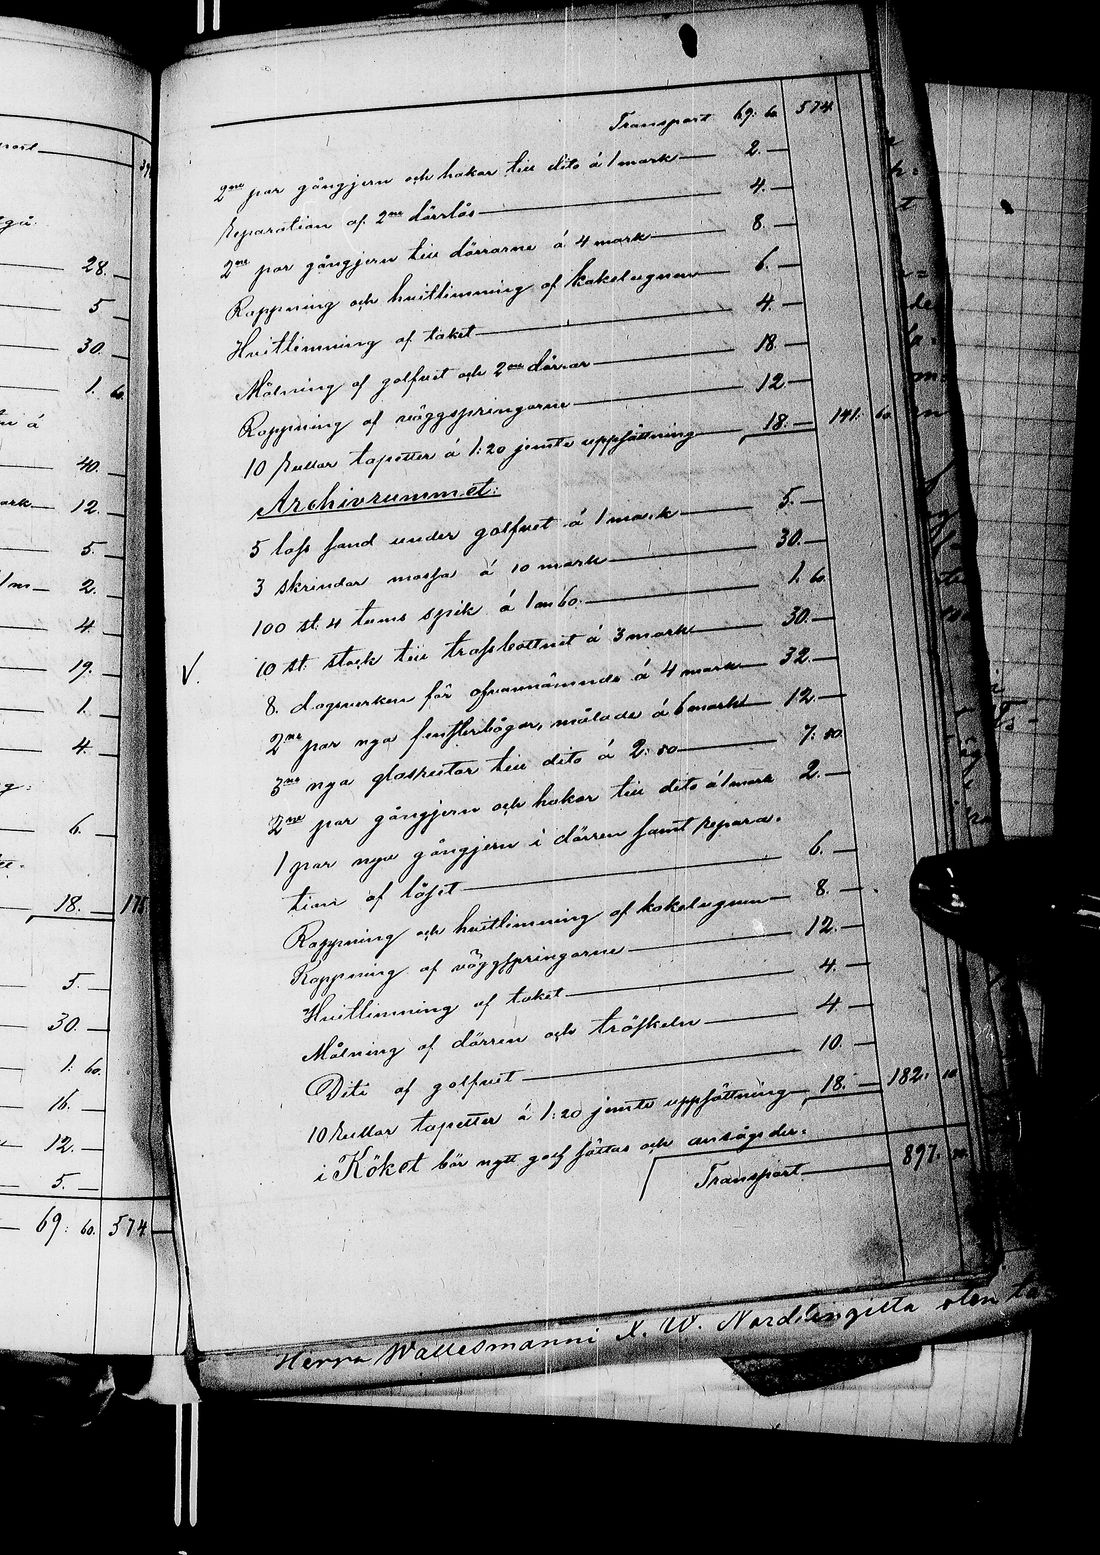 28. —
5 —
30. —
1. 60.
40. —
12. —
5. —
2. —
4. —
19. —
1. —
4. —
6. —
18. — 175
5. —
30. —
1. 60.
16. —
12. —
5. —
69: 60. 574 —
Transport 69: 60. 574
2ne par gångjern och hakar till dito á 1 mark — 2. —
Reparation af 2ne dörrlås — 4. —
2ne par gångjern till dörrarne á 4 mark — 8. —
Rappning och hvitlimning af kakelugnen — 6. —
Hvitlimning af taket — 4. —
Målning af golfvet och 2ne dörrar — 18. —
Rappning af väggspringorne — 12. —
10 Rullar tapetter á 1:20 jemte uppsättning — 18. — 141. 60.
Archivrummet:
5 lass sand under golfvet á 1 mark — 5. —
3 skrindor mossa á 10 mark — 30. —
100 st: 4 tums spik á 1 m 60. — 1. 60.
10 st: stock till trossbottnet á 3 mark — 30. —
V. 8. dagsverken för ofvannämnde á 4 mark — 32. —
2ne par nya fensterbågar, målade á 6 mark — 12. —
3ne nya glasrutor till dito á 2:50 — 7: 50.
2ne par gångjern och hakar till dito á 1 mark 2. —
1 par nya gångjern i dörren samt repara-
tion af låset — 6. —
Rappning och hvitlimning af kakelugnen — 8. —
Rappning af väggspringorne — 12. —
Hvitlimning af taket — 4. —
Målning af dörren och tröskeln — 4. —
Dito af golfvet — 10. —
10 Rullar tapetter á 1:20 jemte uppsättning — 18. — 182. 10
i Köket bör nytt golf sättas och ansågs der:
Transport — 897. 70.
Herra Wallesmanni N. W. Nordlingilta olen